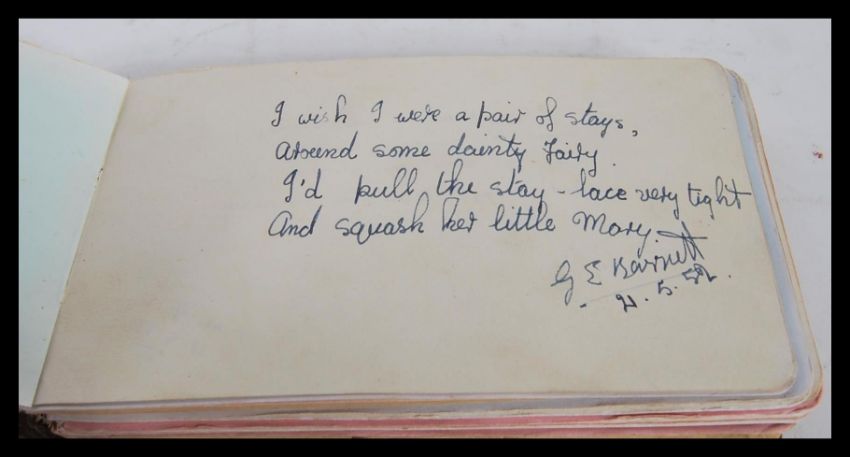 I wish I were a pair of stays,
Around some dainty Fairy.
I'd pull the stay-lace very tight
And squash her little Mary.
G E Barnett
21.5.52.